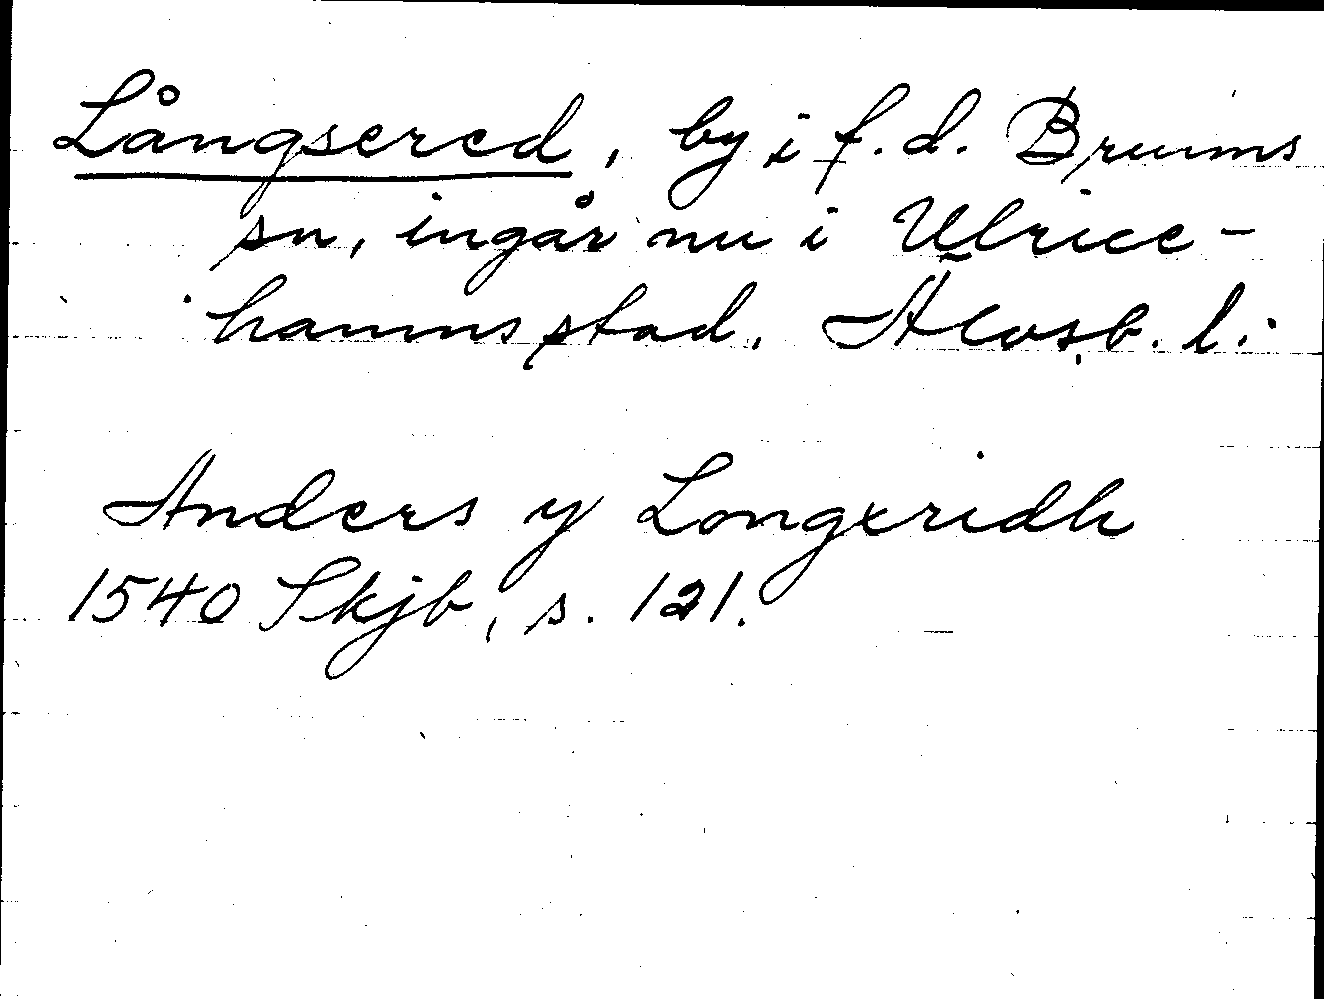 Långsered, by i f.d. Brunns
sn, ingår nu i Ulrice-
hamns stad. Älvsb. l.
Anders y Longxeridh
1540 Skjb, s. 121.